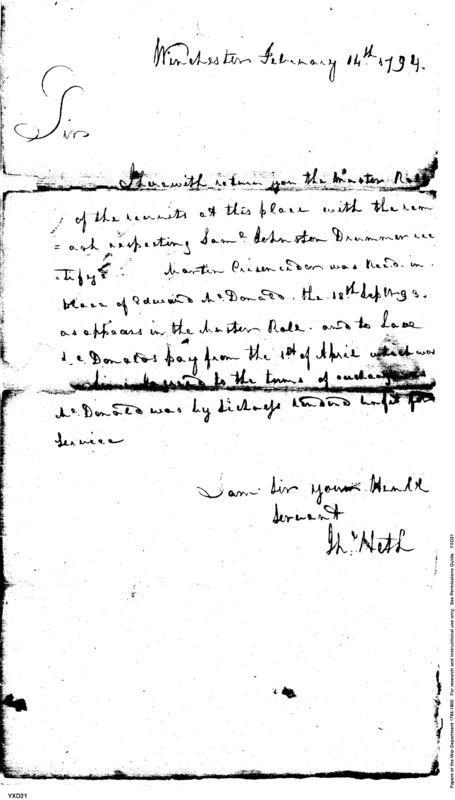 Winchester February 14th 1794.
Sir
I herewith return you the Muster Roll
of the recruits at this place with the rem
= ark respecting Saml Johnston Drummer rec
tifyd Martin was Recd. in
place of Edward McDonald. the 18th Sept. 93.
as appears in the Muster Role. and to have
Mc Donalds pay from the 1st of April which was
agreed to the terms of exchange as
Mc Donald was by Sickness rendered unfit for
Service
I am Sir your Humble
Servant
Jno. Heth
Papers of the War Department 1784-1800. For research and instructional use only. See Permissions Guide. YXD21
YXD21